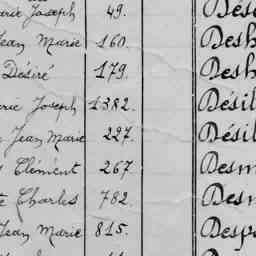 Joseph 49. Dés
Jean Marie 160. Desh
Désiré 179. Desh
Joseph 1382. Désil
Jean Marie 227. Désil
Clément 267. Desm
Charles 782. Desn
Jean Marie 815. Desp